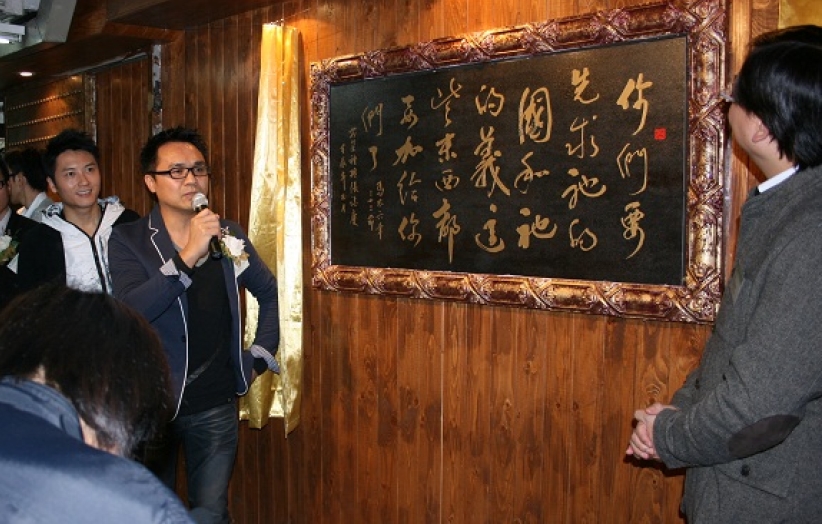 你們要
先求祂的
國和祂
的義這
些東西都
要加給你
們了
馬太六章
三十三節